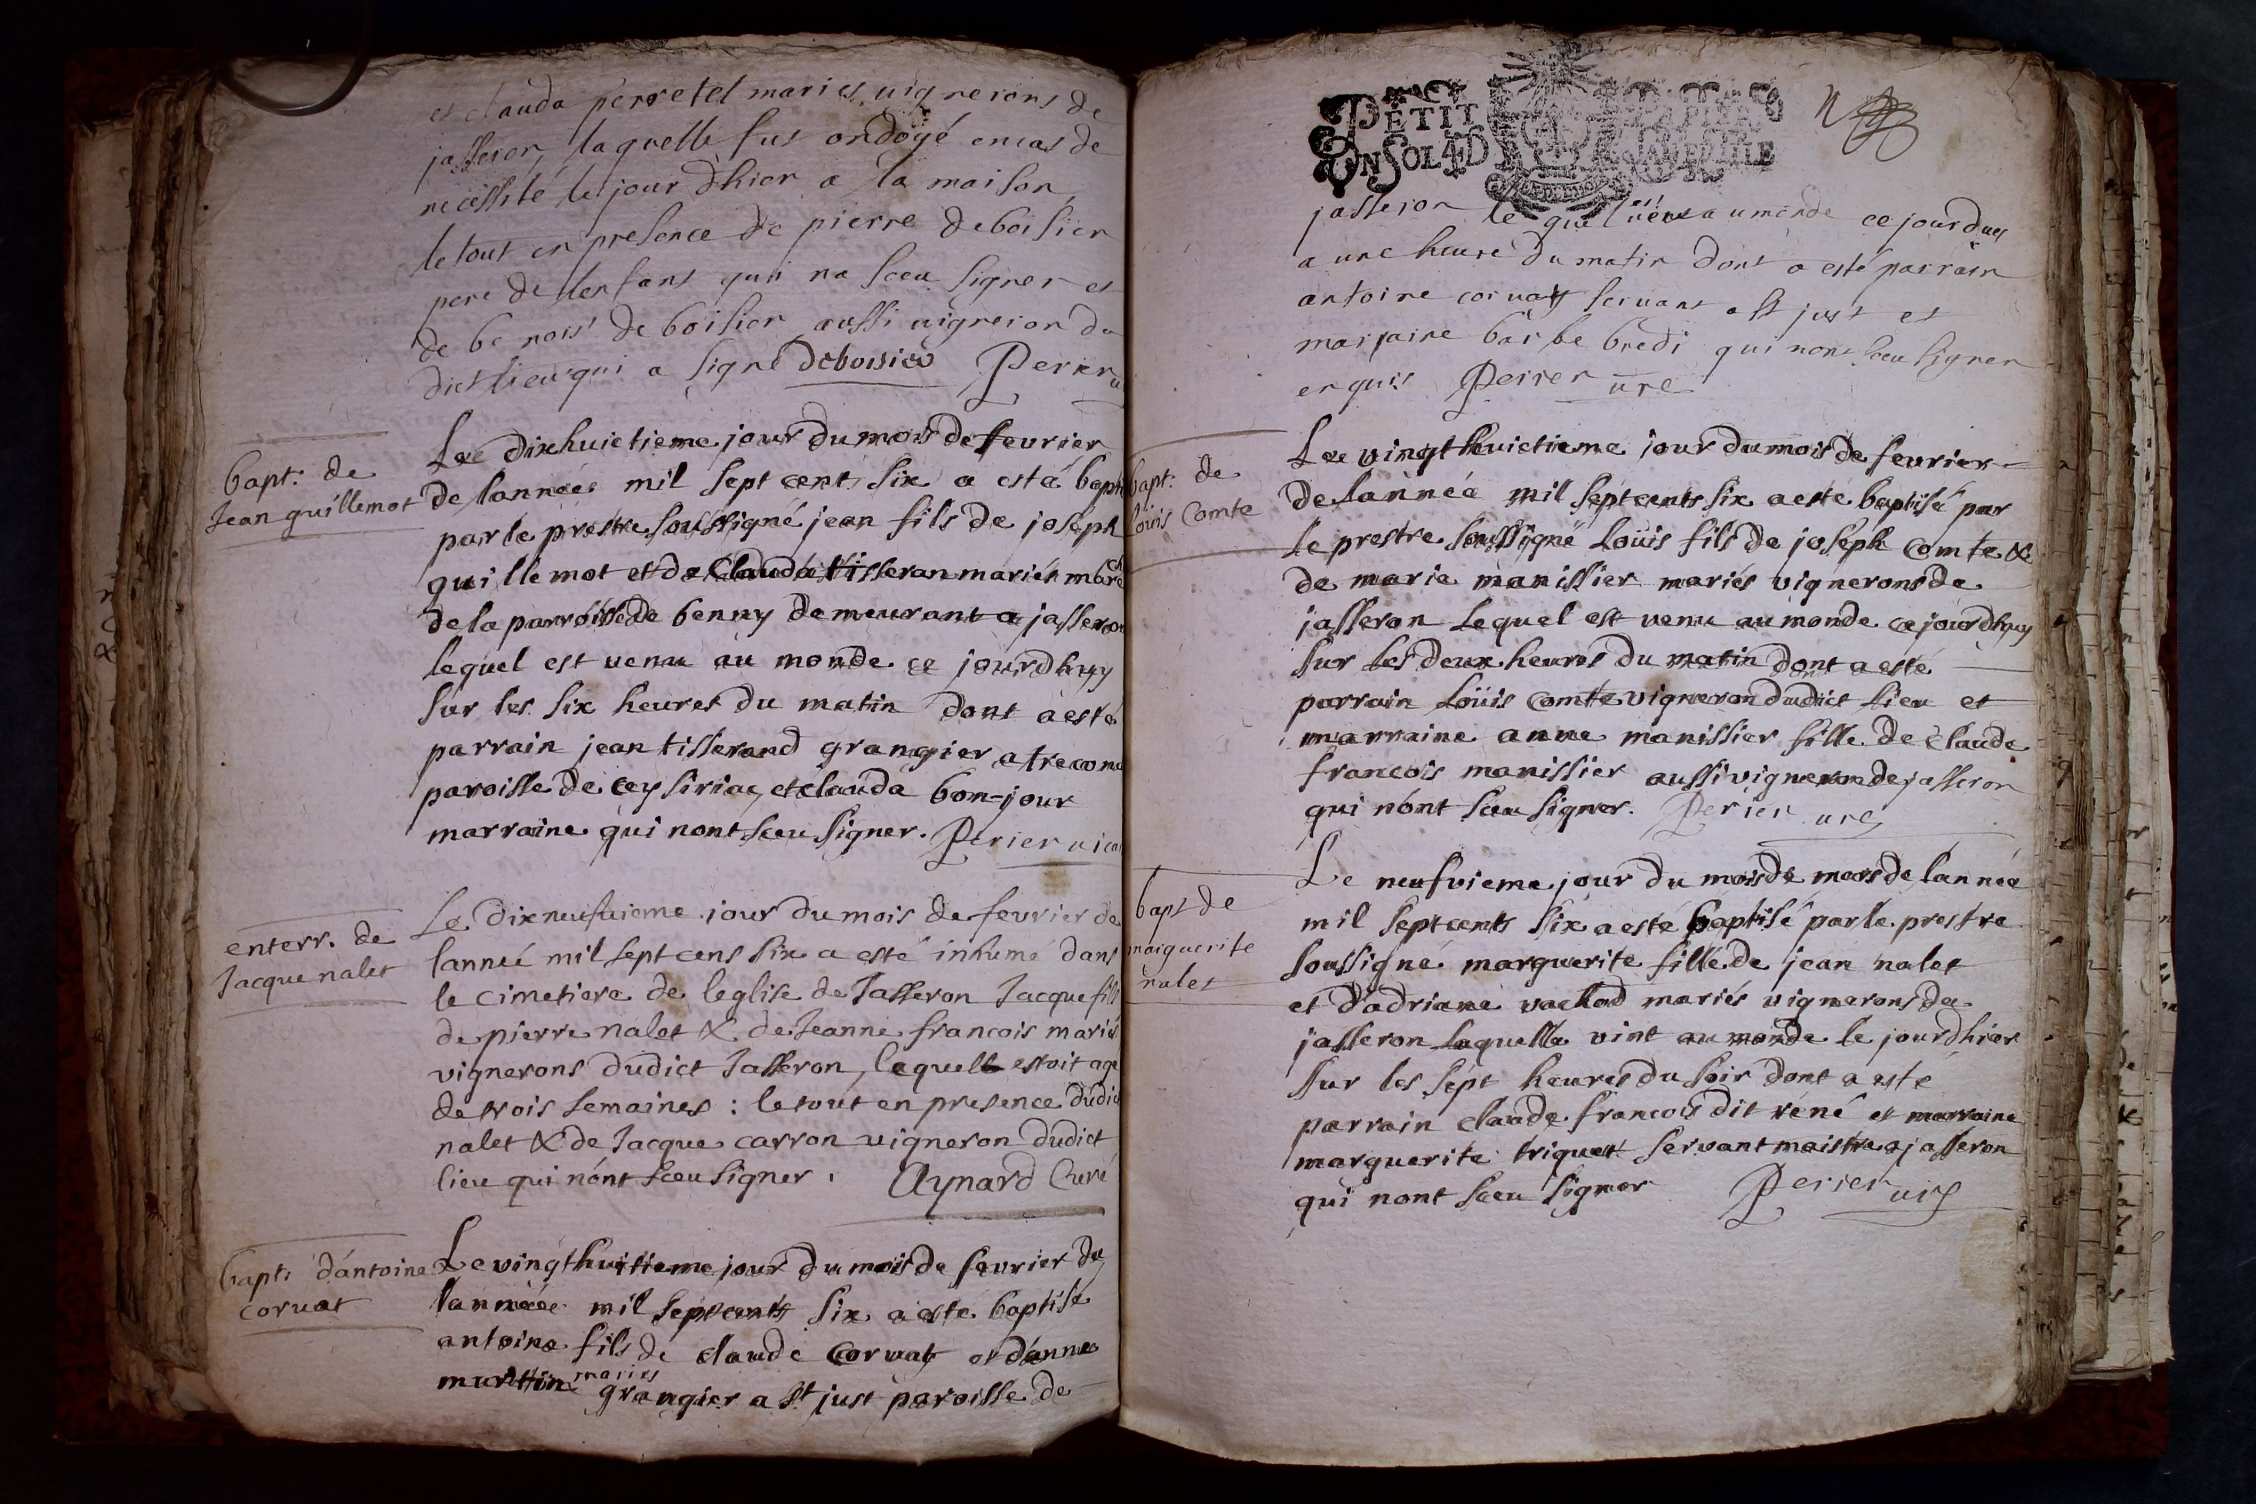 et clauda perretel mariés vignerons de
jasseron, laquelle fus ondoyé encas de
nécéssité le jour dhier a la maison
le tout en presence de pierre deboisier
pere de lenfant qui na sceu signer et
de benois de boisier aussi vigneron du
dict lieu qui a signé deboisier Perier
Le dixhuictieme jour du mois de fevrier
bapt: de
Jean guillemot
de lanneé mil sept cents six a esté bapti
par le prestre soussigné jean fils de joseph
guillemot et de Clauda tisseran mariés
de la parroisse de benny demeurant a jasseron
lequel est venu au monde ce jourdhuy
sur les six heures du matin dont a esté
parrain jean tisserand grangier a trecon
paroisse de ceysiriac, et clauda bon-jour
marraine qui nont sceu signer. Perier vica
enterr. de
Jacque nalet
Le dixneufvieme jour du mois de fevrier de
lanneé mil sept cens six a esté inhumé dans
le cimetiere de leglise de Jasseron Jacque fils
de pierre nalet & de Jeanne francois mariés
vignerons dudict Jasseron, lequell estoit agé
de trois semaines : le tout en presence dudict
nalet & de Jacque carron vigneron dudict
lieu qui nónt sceu signer. Aynard Curé
bapt: dántoine
corvat
Le vingthuitieme jour du mois de fevrier de
lanneé mil septcents six a esté baptisé
antoine fils de claude Corvat et dánne
mariés
grangier a st just paroisse de
PETIT PAPIER
UN SOL 4 D LA FEUILLE
jasseron le quel venu au monde ce jourdhuy
a une heure du matin dont a esté parrain
antoine corvat servant a st just et
marraine barbe bredi qui nont sceu signer
enquis Perier vre
bapt: de
louis Comte
Le vingthuictieme jour du mois de fevrier
de lanneé mil septcents six a esté baptisé par
le prestre soussigné Loüis fils de joseph Comte &
de marie manissier mariés vignerons de
jasseron Lequel est venu au monde ce jourdhuy
sur les deux heures du matin dont a esté
parrain Loüis Comte vigneron dudict lieu et
marraine anne manissier fille de claude
francois manissier aussi vigneron de jasseron
qui nónt sceu signer. Perier vre
bapt de
marguerite
nalet
Le neufvieme jour du mois de mars de lanneé
mil septcents six a esté baptisé par le prestre
soussigné marguerite fille de jean nalet
et dádriane vachod mariés vignerons de
jasseron laquelle vint au monde le jourdhier
sur les sept heures du soir dont a esté
parrain claude francois dit réné et marraine
marguerite triquet servant maistre a jasseron
qui nont sceu signer Perier vre